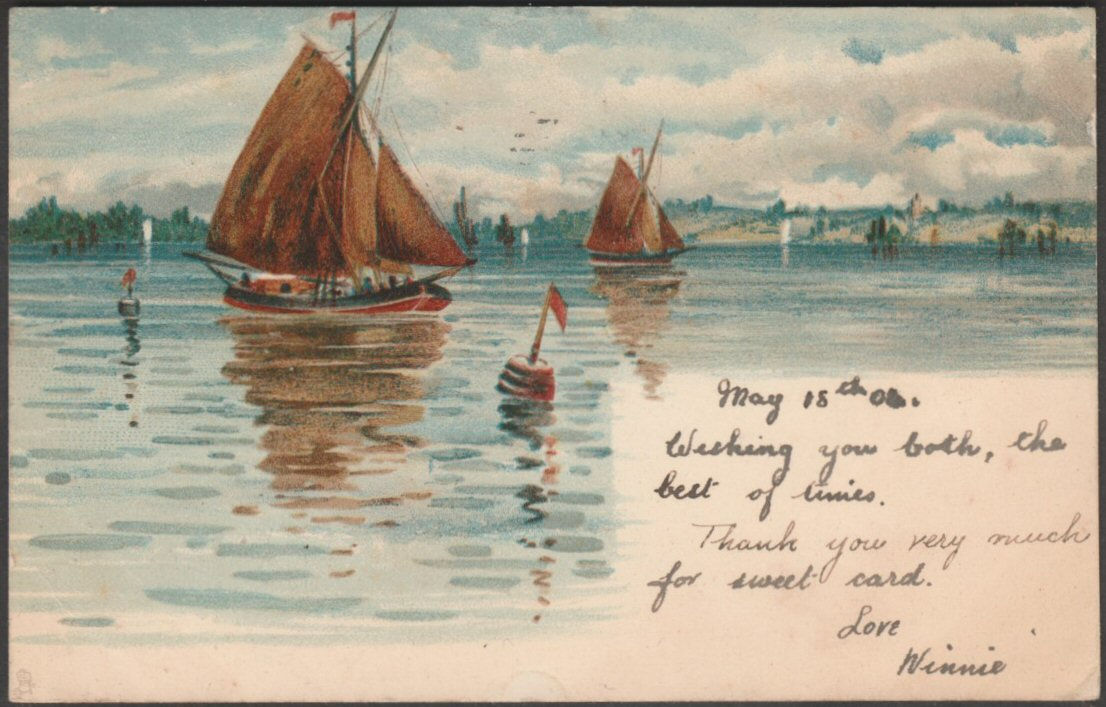 May 18th 02.
Wishing you both, the
best of times.
Thank you very much
for sweet card.
Love
Winnie